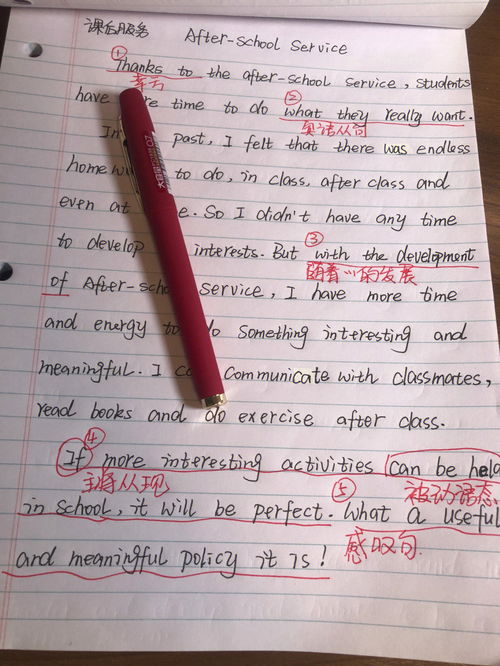 课后服务 After-school Service
①
Thanks to the after-school service, students
幸亏 ②
have time to do what they really want.
宾语从句
In past, I felt that there was endless
to do, in class, after class and
even at So I didn't have any time
③
to develop interests. But with the development
随着…的发展
of After-school service, I have more time
and energy to do something interesting and
meaningful. I communicate with classmates,
read books and do exercise after class.
④
If more interesting activities can be held
主将从现 ⑤ 被动语态
in school, it will be perfect. What a useful
感叹句
and meaningful policy it is!